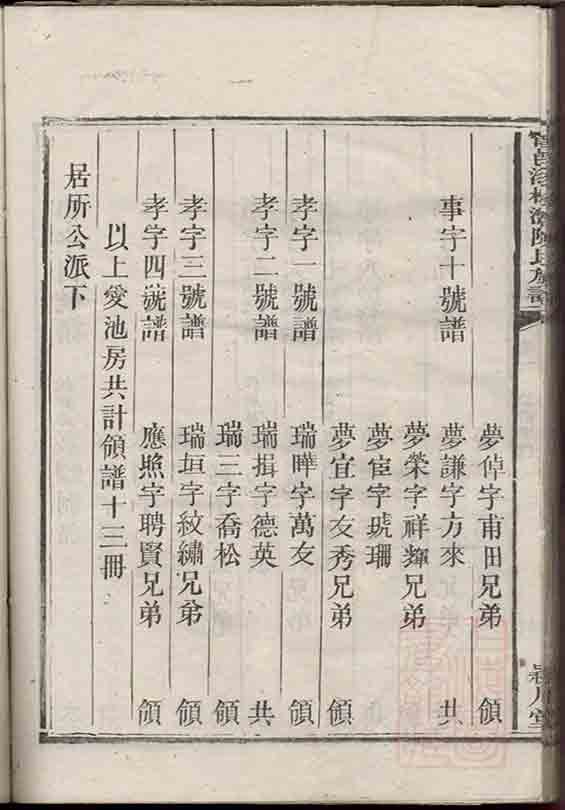 夢倬字甫田兄弟 領
事字十號譜 夢謙字方來 共
夢榮字祥輝兄弟
夢宦字琥珊
夢宜字友秀兄弟 領
孝字一號譜 瑞曄字萬友 領
孝字二號譜 瑞揖字德英 共
瑞三字喬松 領
孝字三號譜 瑞垣字紋繡兄弟 領
孝字四號譜 應㷖字聘賢兄弟 領
以上愛池房共計領譜十三冊
居所公派下